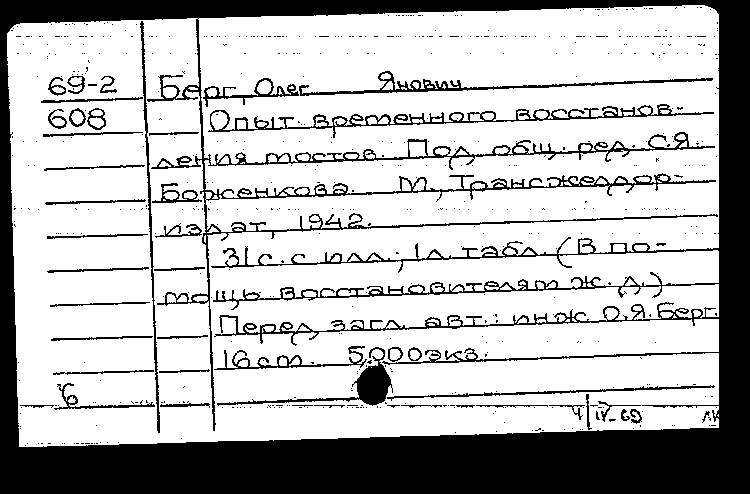 69-2 Берг, Олег Янович
608 Опыт временного восстанов-
ления мостов. Под общ. ред. С.Я.
Боженкова. М., Трансжелдор-
издат, 1942.
31 с. с илл.; 1 л. табл. (В по-
мощь восстановителям ж.д.).
Перед загл. авт.: инж О.Я. Берг.
16 cm. 5.000 экз.
б
4/IV-69 ЛК